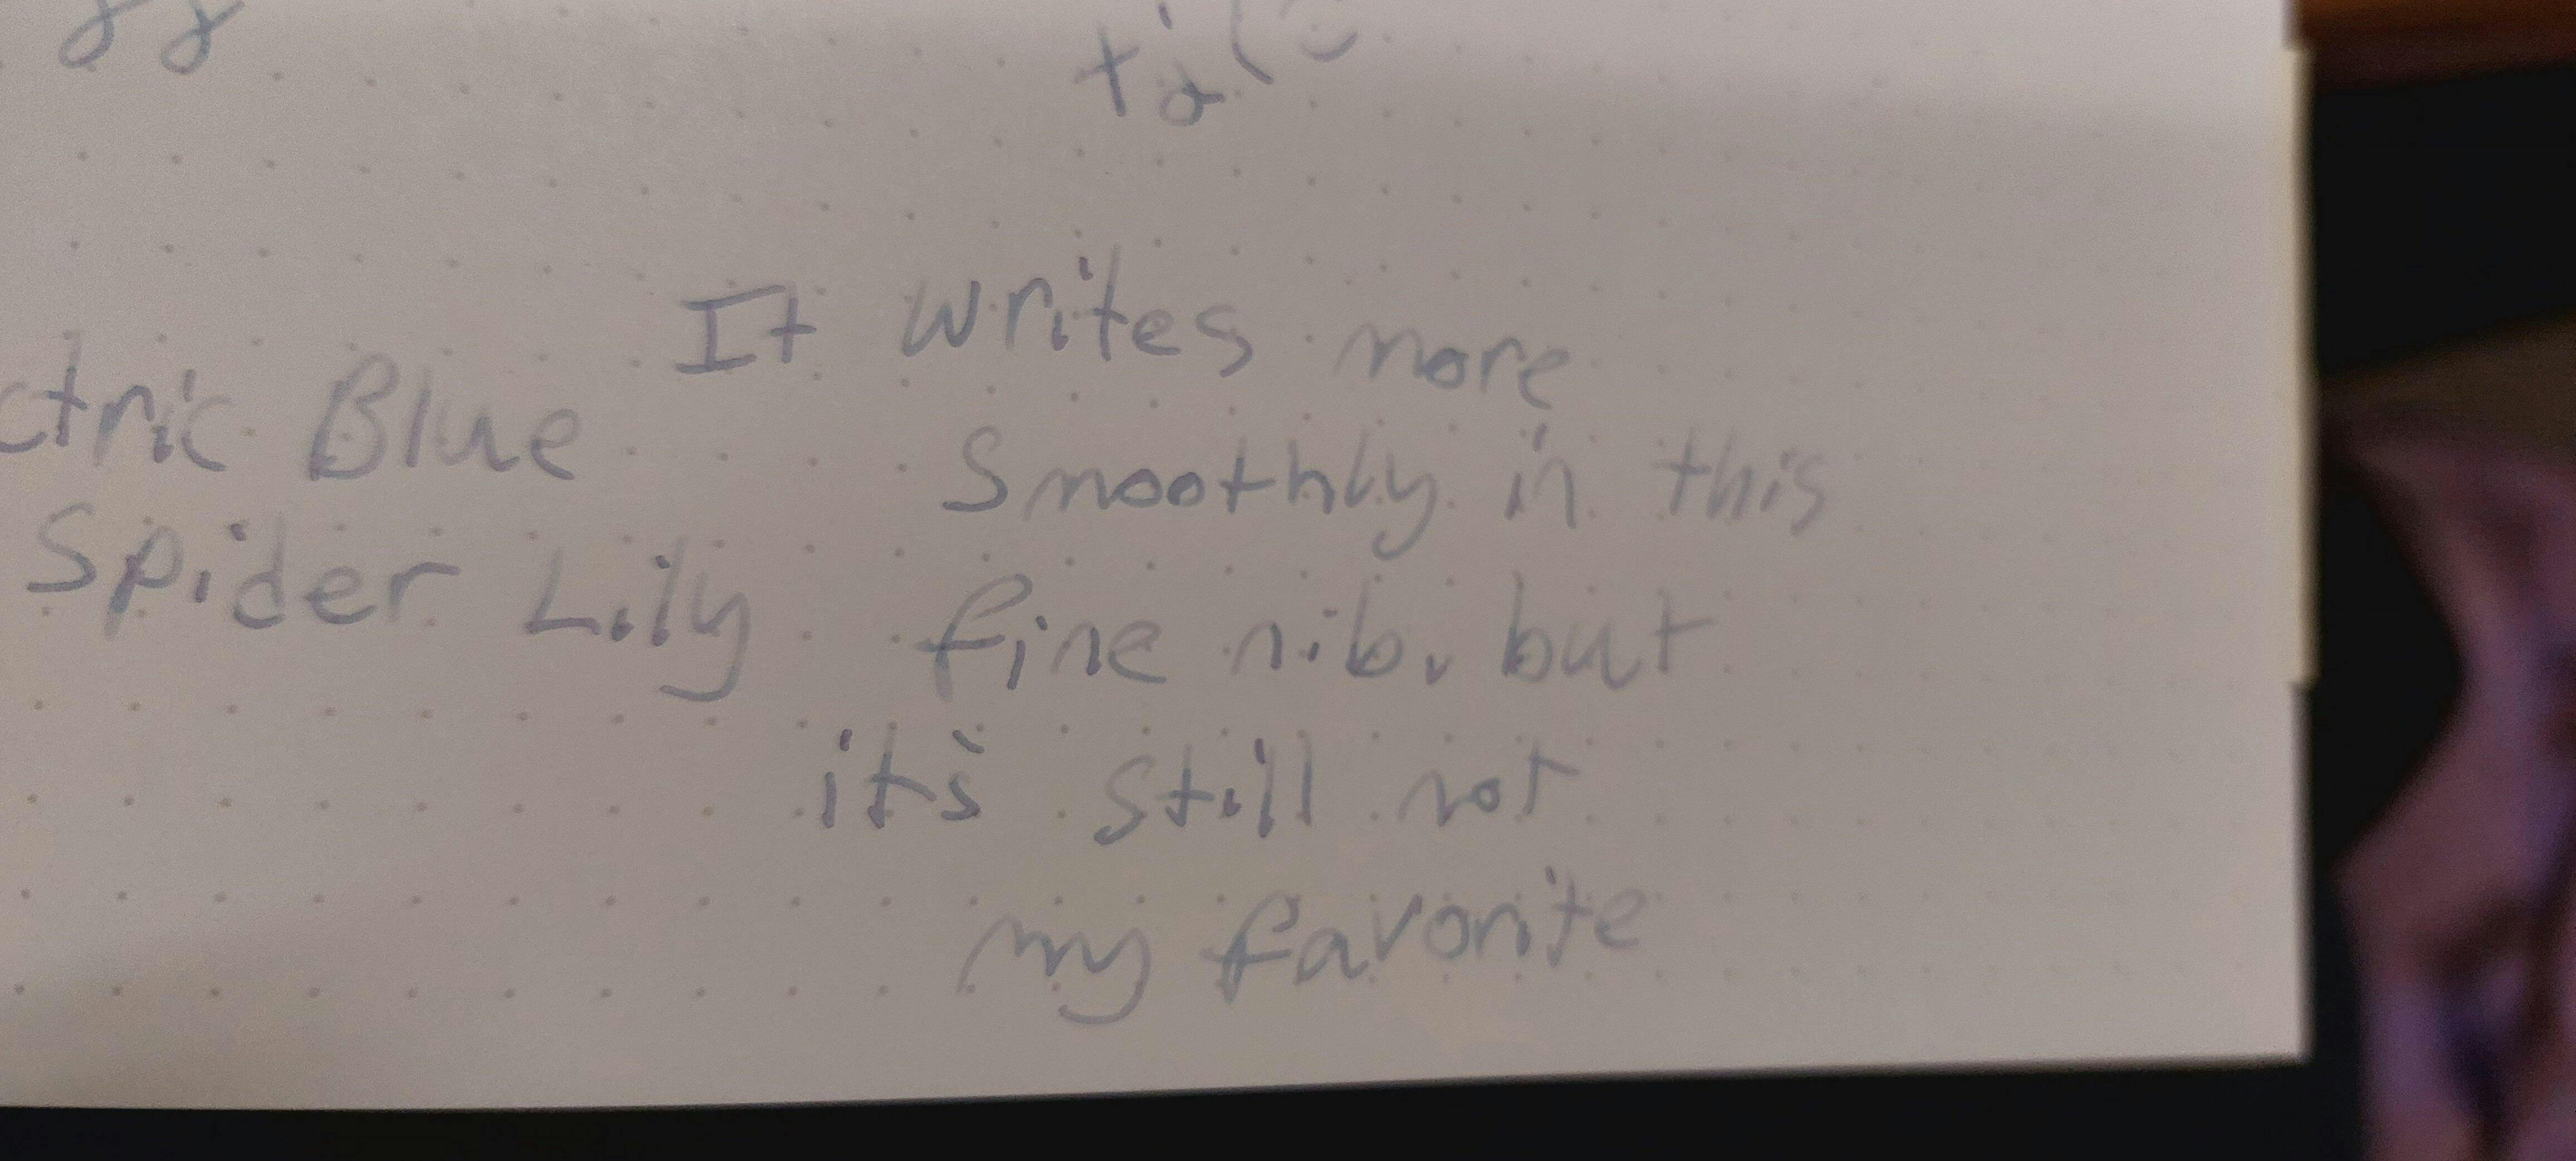 It writes more
smoothly in this
fine nib, but
it's still not
my favorite
ctric Blue
Spider Lily